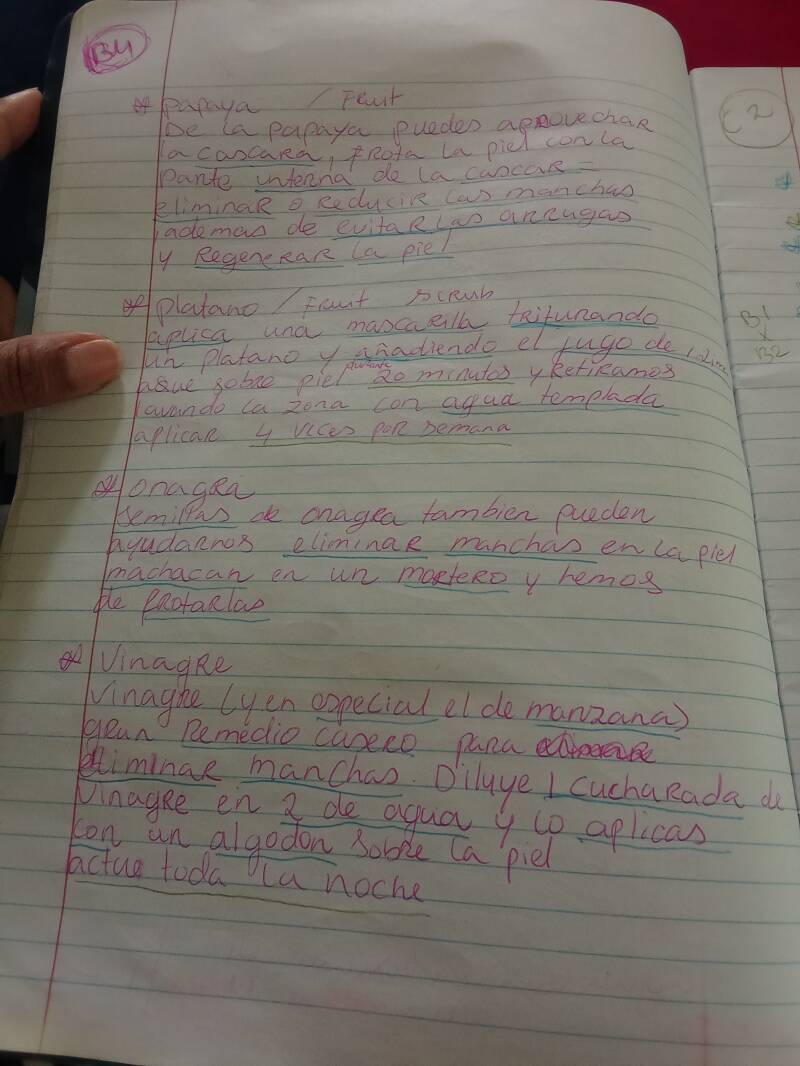 B4
* Papaya / Fruit
De la papaya puedes aprovechar
la cascara, frota la piel con la
parte interna de la cascar =
eliminar o reducir las manchas
ademas de evitar las arrugas
y Regenerar la piel
* platano / Fruit scrub
aplica una mascarilla triturando
un platano y añadiendo el jugo de 1 lime
aque sobre piel durante 20 minutos y retiramos
lavando la zona con agua templada
aplicar 4 vices por semana
* onagra
semillas de onagra tambien pueden
ayudarnos eliminar manchas en la piel
machacan en un mortero y hemos
de frotarlas
* Vinagre
Vinagre (y en especial el de manzana)
gran Remedio casero para
eliminar manchas. Diluye 1 cucharada de
vinagre en 2 de agua y lo aplicas
con un algodon sobre la piel
actue toda la noche
C2
B1
x
B2